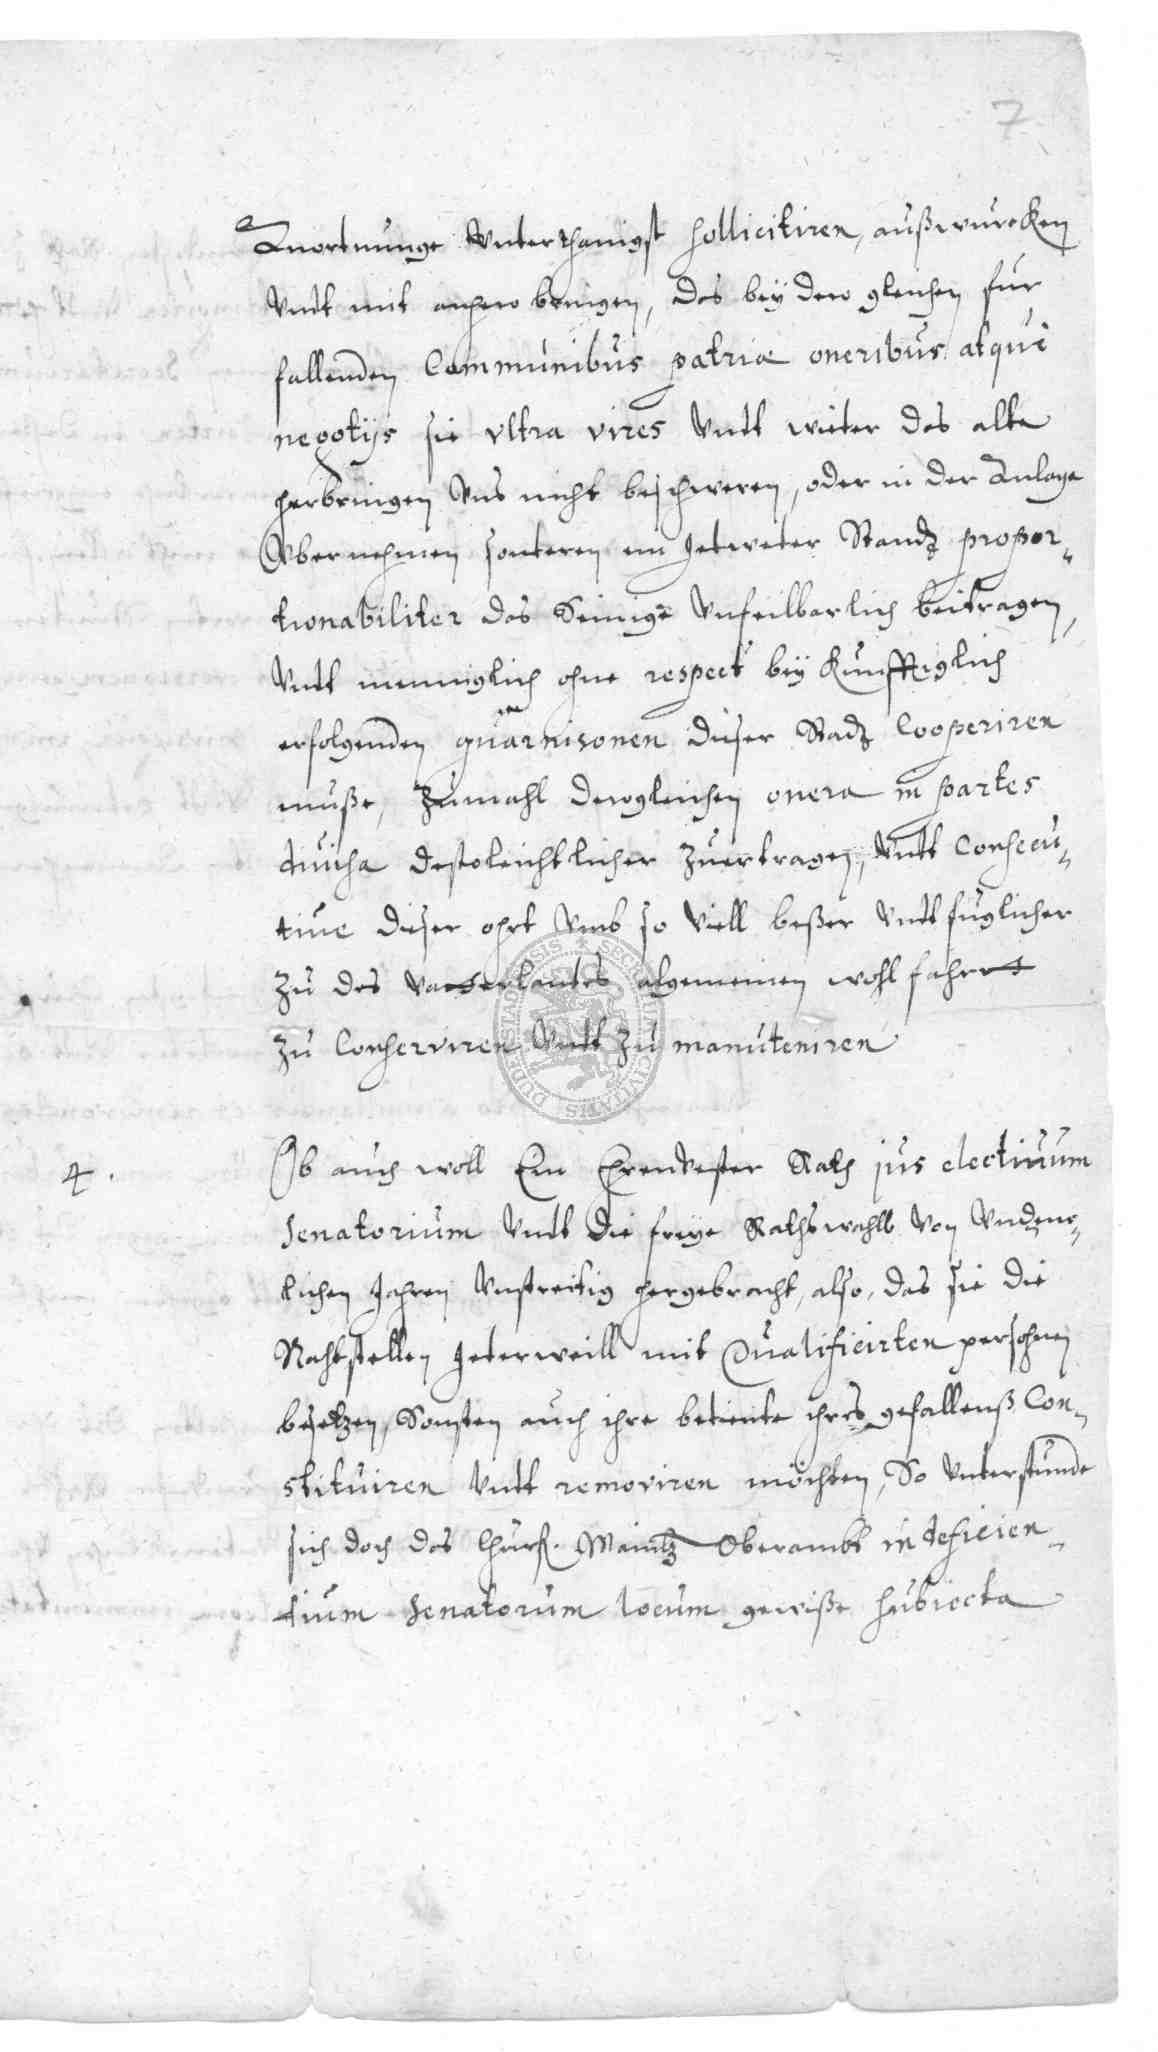 7
Anortnunge Vnterthanigst sollicitiren, außwurcken
Vndt mit anhero bringen, das bey dero gleichen fur
fallenden Communibus patriæ oneribus atque
negotijs sie vltra vires Vndt wieter das alte
herbringen Vns nicht beschweren, oder in der Anlage
Vbernehmen sonteren ein Jetweter Standt propor-
tionabiliter das Seinige Vnfeilbarlich beitragen,
Vndt menniglich ohne respect bey Kunfftiglich
erfolgenden guarnisonen dieser Stadt Cooperiren
muße, Zumahl derogleichen onera in partes
diuisa destoleichtlicher Zuertragen, Vndt Consecu-
tiue dieser ohrt Vmb so Viell beßer Vndt fuglicher
Zu des Vatterlantes algemeinen wohlfahrt
Zu Conserviren Vndt Zu manuteniren
4. Ob auch woll Ein Ehrenvester Rath jus electiuum
senatorium Vndt die freye Rathswahll Von Vndenc-
lichen Jahren Vnstreitig hergebracht, also, das sie die
Rahtstellen Jeterweill mit Qualificirten persohnen
besetzen, Sonsten auch ihre betiente ihres gefallenß Con-
stituiren Vndt removiren möchten, So Vnterstunde
sich doch das Churf. Maintz Oberambt in deficien-
tium senatorum locum gewiße subiecta